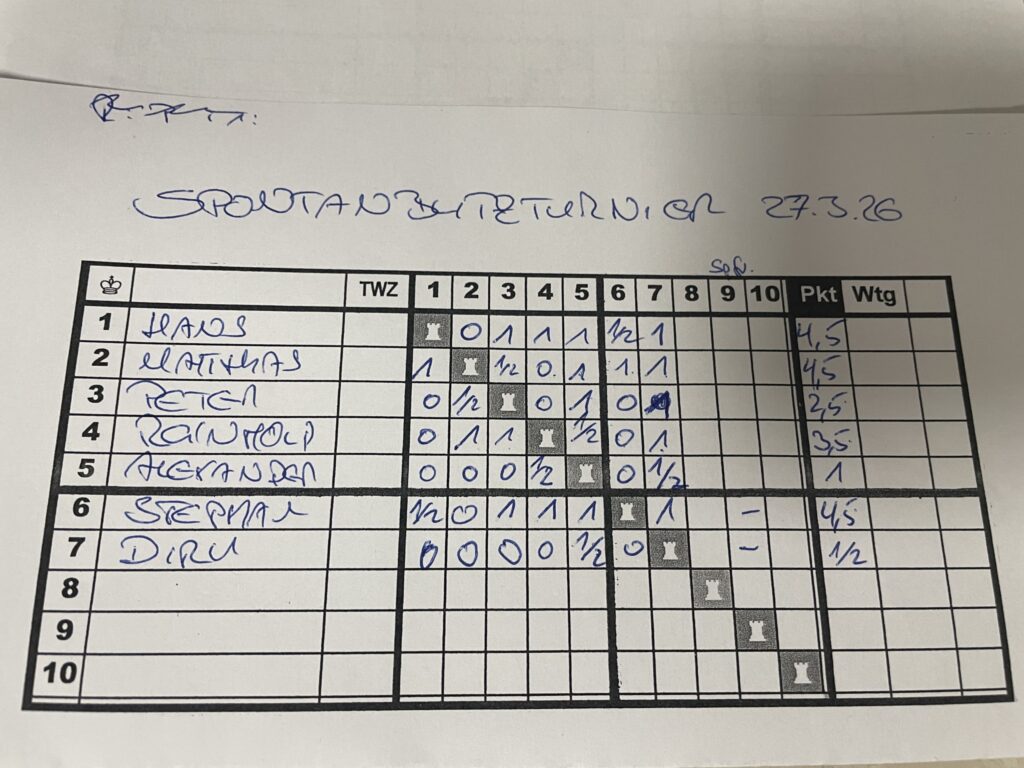 SPONTANBLITZTURNIER 27.3.26
TWZ 1 2 3 4 5 6 7 8 9 10 Pkt Wtg
1 HANS 0 1 1 1 1/2 1 4,5
2 MATTHIAS 1 1/2 0 1 1 1 4,5
3 PETER 0 1/2 0 1 0 1 2,5
4 REINHOLD 0 1 1 1/2 0 1 3,5
5 ALEXANDER 0 0 0 1/2 0 1/2 1
6 STEPHAN 1/2 0 1 1 1 1 - 4,5
7 DIRK 0 0 0 0 1/2 0 - 1/2
8
9
10